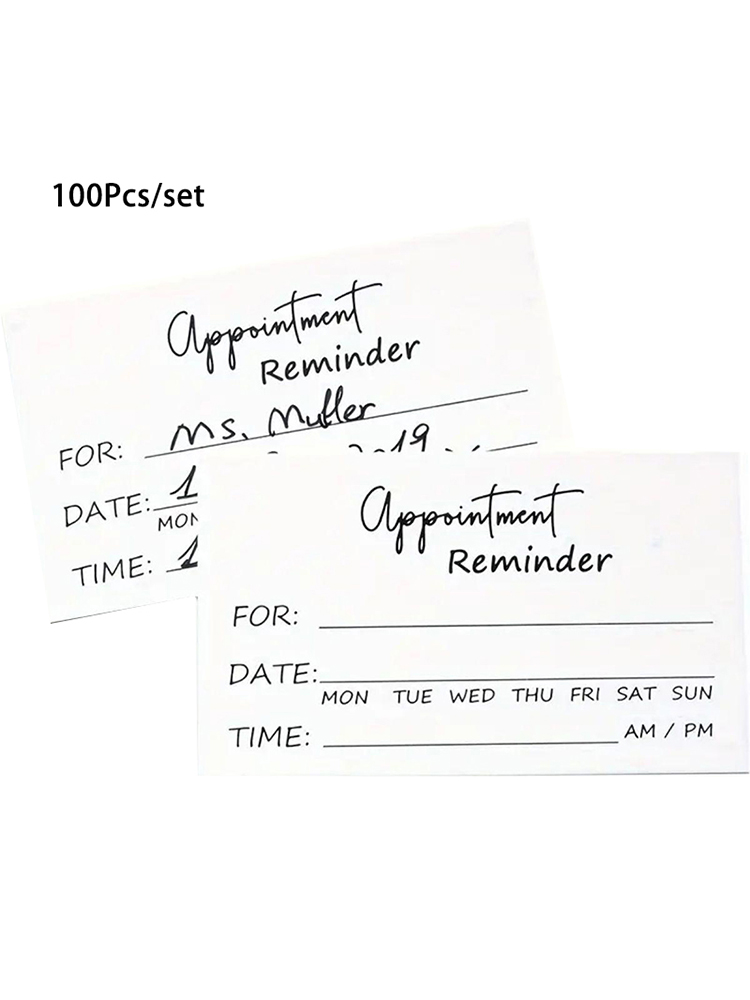 100Pcs/set
Appointment
Reminder
FOR: Ms. Muller
DATE: 1
MON
TIME: 1
Appointment
Reminder
FOR:
DATE:
MON TUE WED THU FRI SAT SUN
TIME: AM / PM